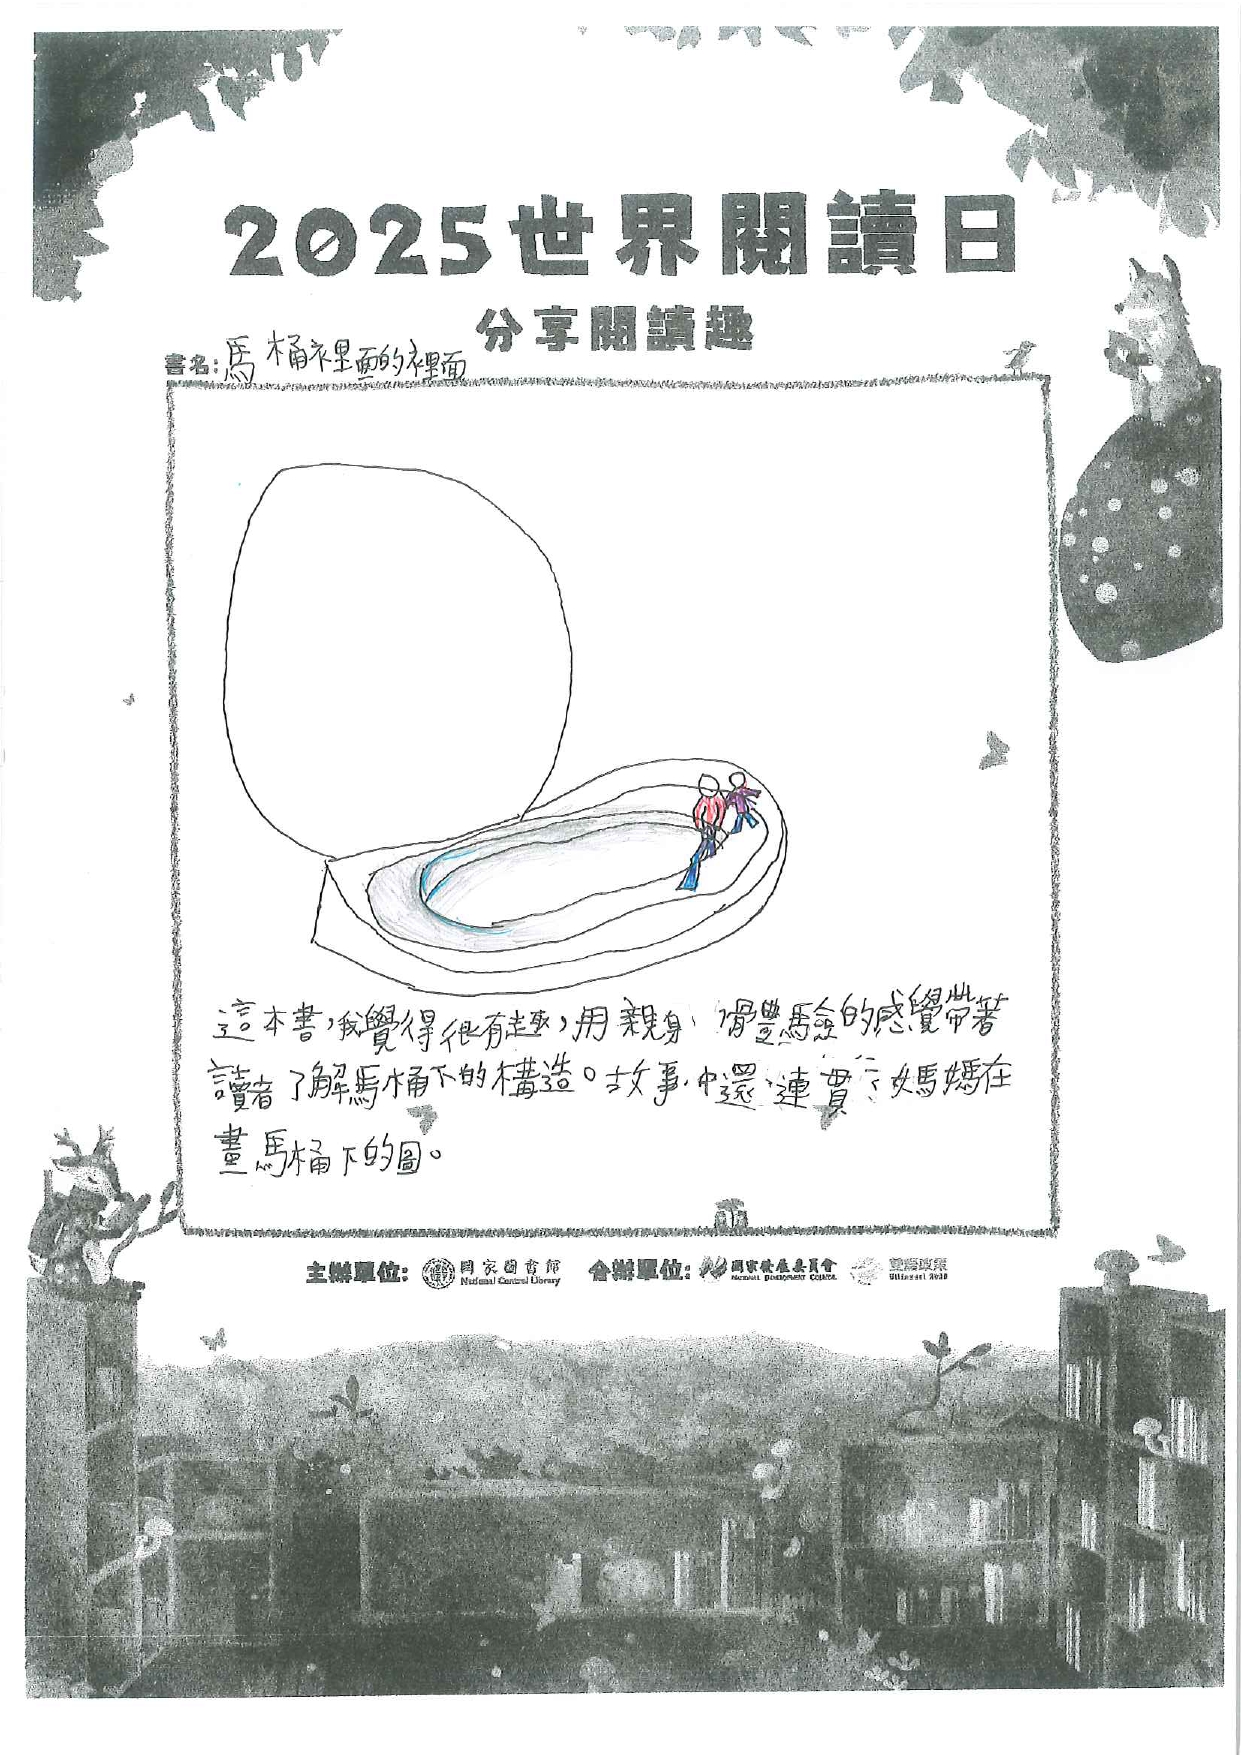 2025世界閱讀日
分享閱讀趣
書名:馬桶裡面的裡面
這本書,我覺得很有趣,用親身、體驗的感覺帶著
讀者了解馬桶下的構造。故事中還連貫了媽媽在
畫馬桶下的圖。
主辦單位: 國家圖書館 National Central Library 合辦單位: 國家發展委員會 NATIONAL DEVELOPMENT COUNCIL 雙語政策 Bilingual 2030